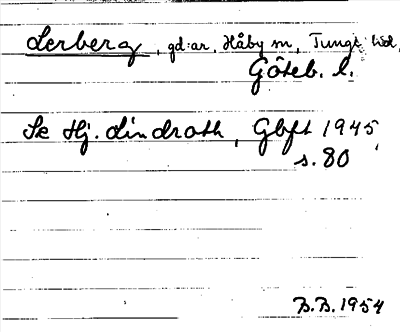 Lerberg, gd:ar, Håby sn, Tunge hd,
Göteb. l.
Se Hj. Lindroth, Gbft 1945,
s. 80
B.B. 1954